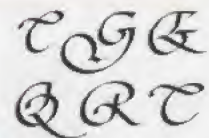 T G E
Q R T